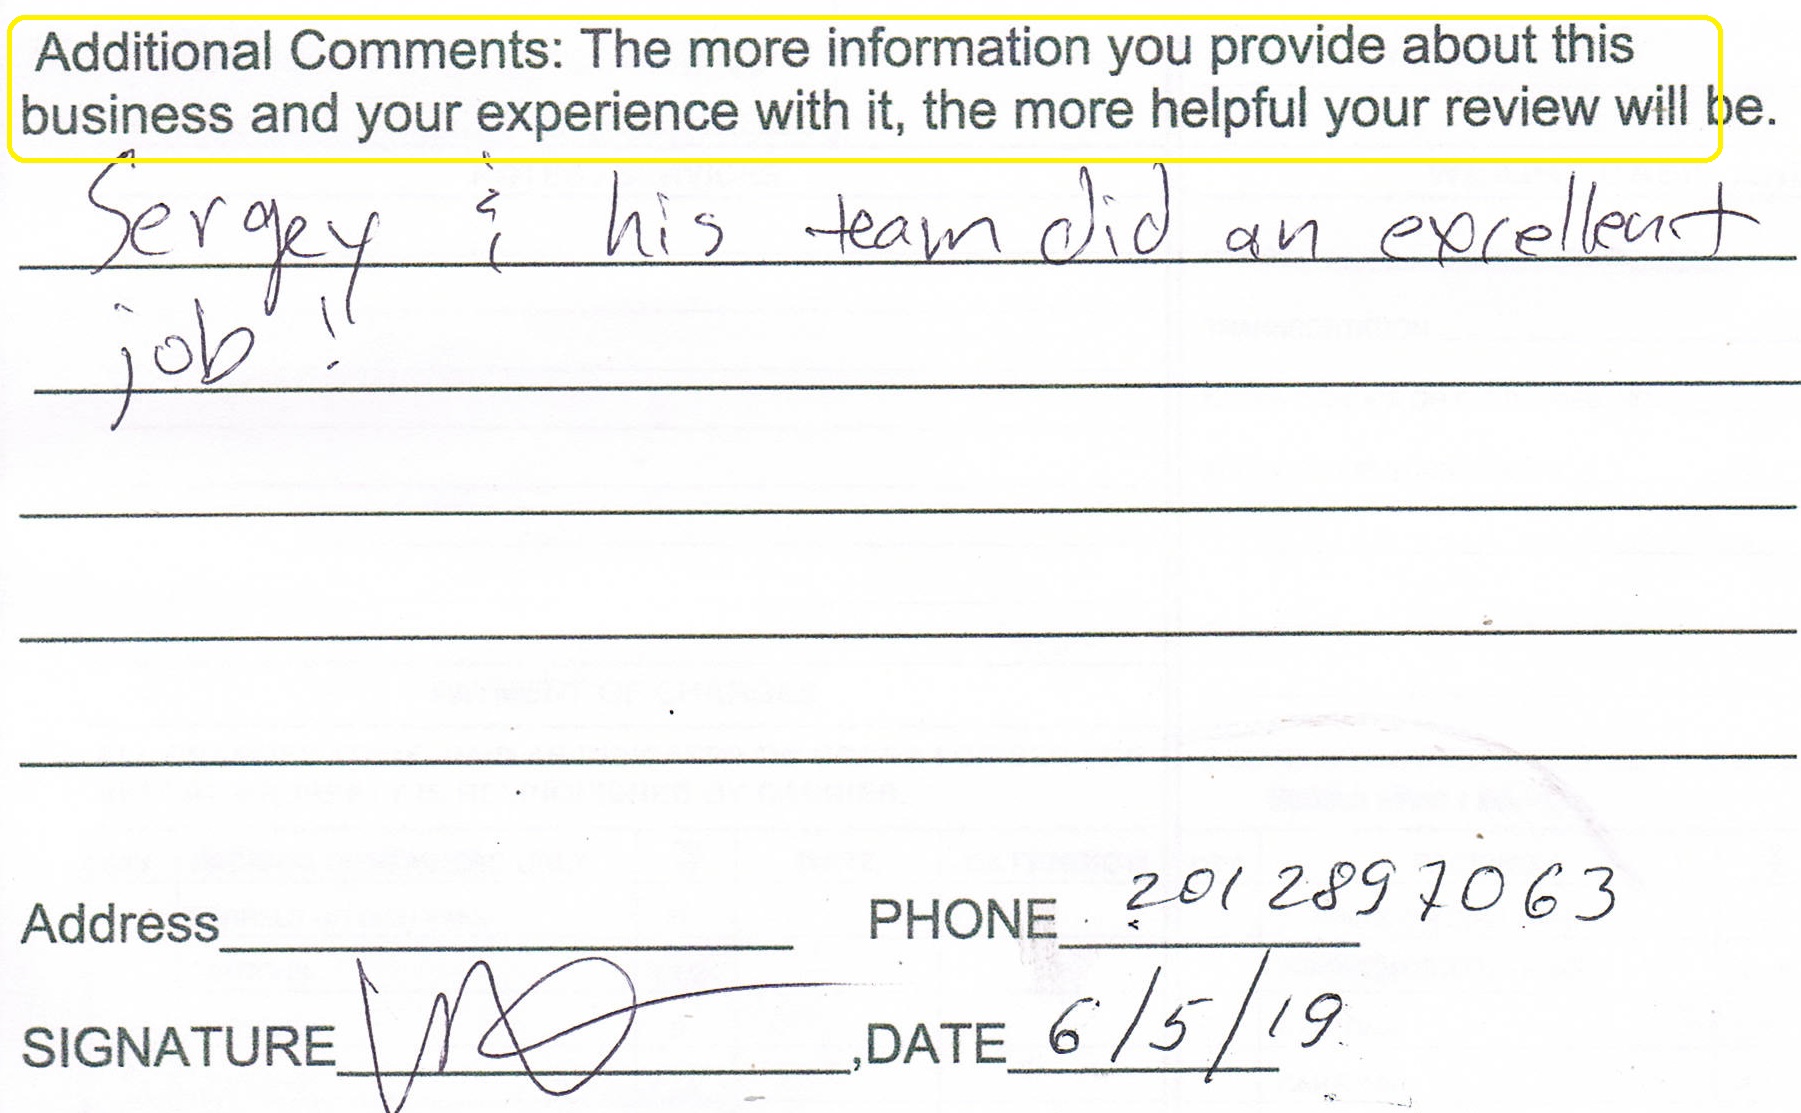 Additional Comments: The more information you provide about this
business and your experience with it, the more helpful your review will be.
Sergey & his team did an excellent
job!!
Address PHONE 201 289 7063
SIGNATURE ,DATE 6/5/19